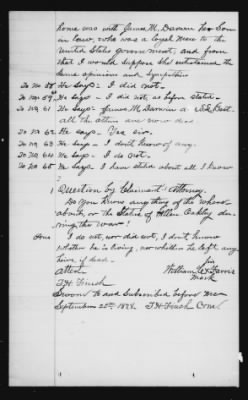 home was with James M. Darwin her Son
in law, who was a loyal man to the
United States government, and from
that I would suppose she entertained the
same opinion and Sympathies
To No 58th He Says - I did not.
To No 59th He Says - I did not, as before stated.
To No 61 He Says - James M. Darwin &
all the others are now dead
To No 62 He Says - Yes sir.
To No 63 He Says - I don't know of any.
To No 64 He Says - I do not.
To No 65 He Says - I have stated about all I know
1 Question by Claimant's Attorney.
Do you know anything of the where-
abouts, or the State of Allen Oakley du-
ring the war?
Ans I do not, nor did not, I don't know
whether he is living, nor whether he left any
heirs if dead.
Attest William X Harris
his
mark
T. H. Finch
Sworn to and Subscribed before me
September 22nd 1874. T. H. Finch Com.